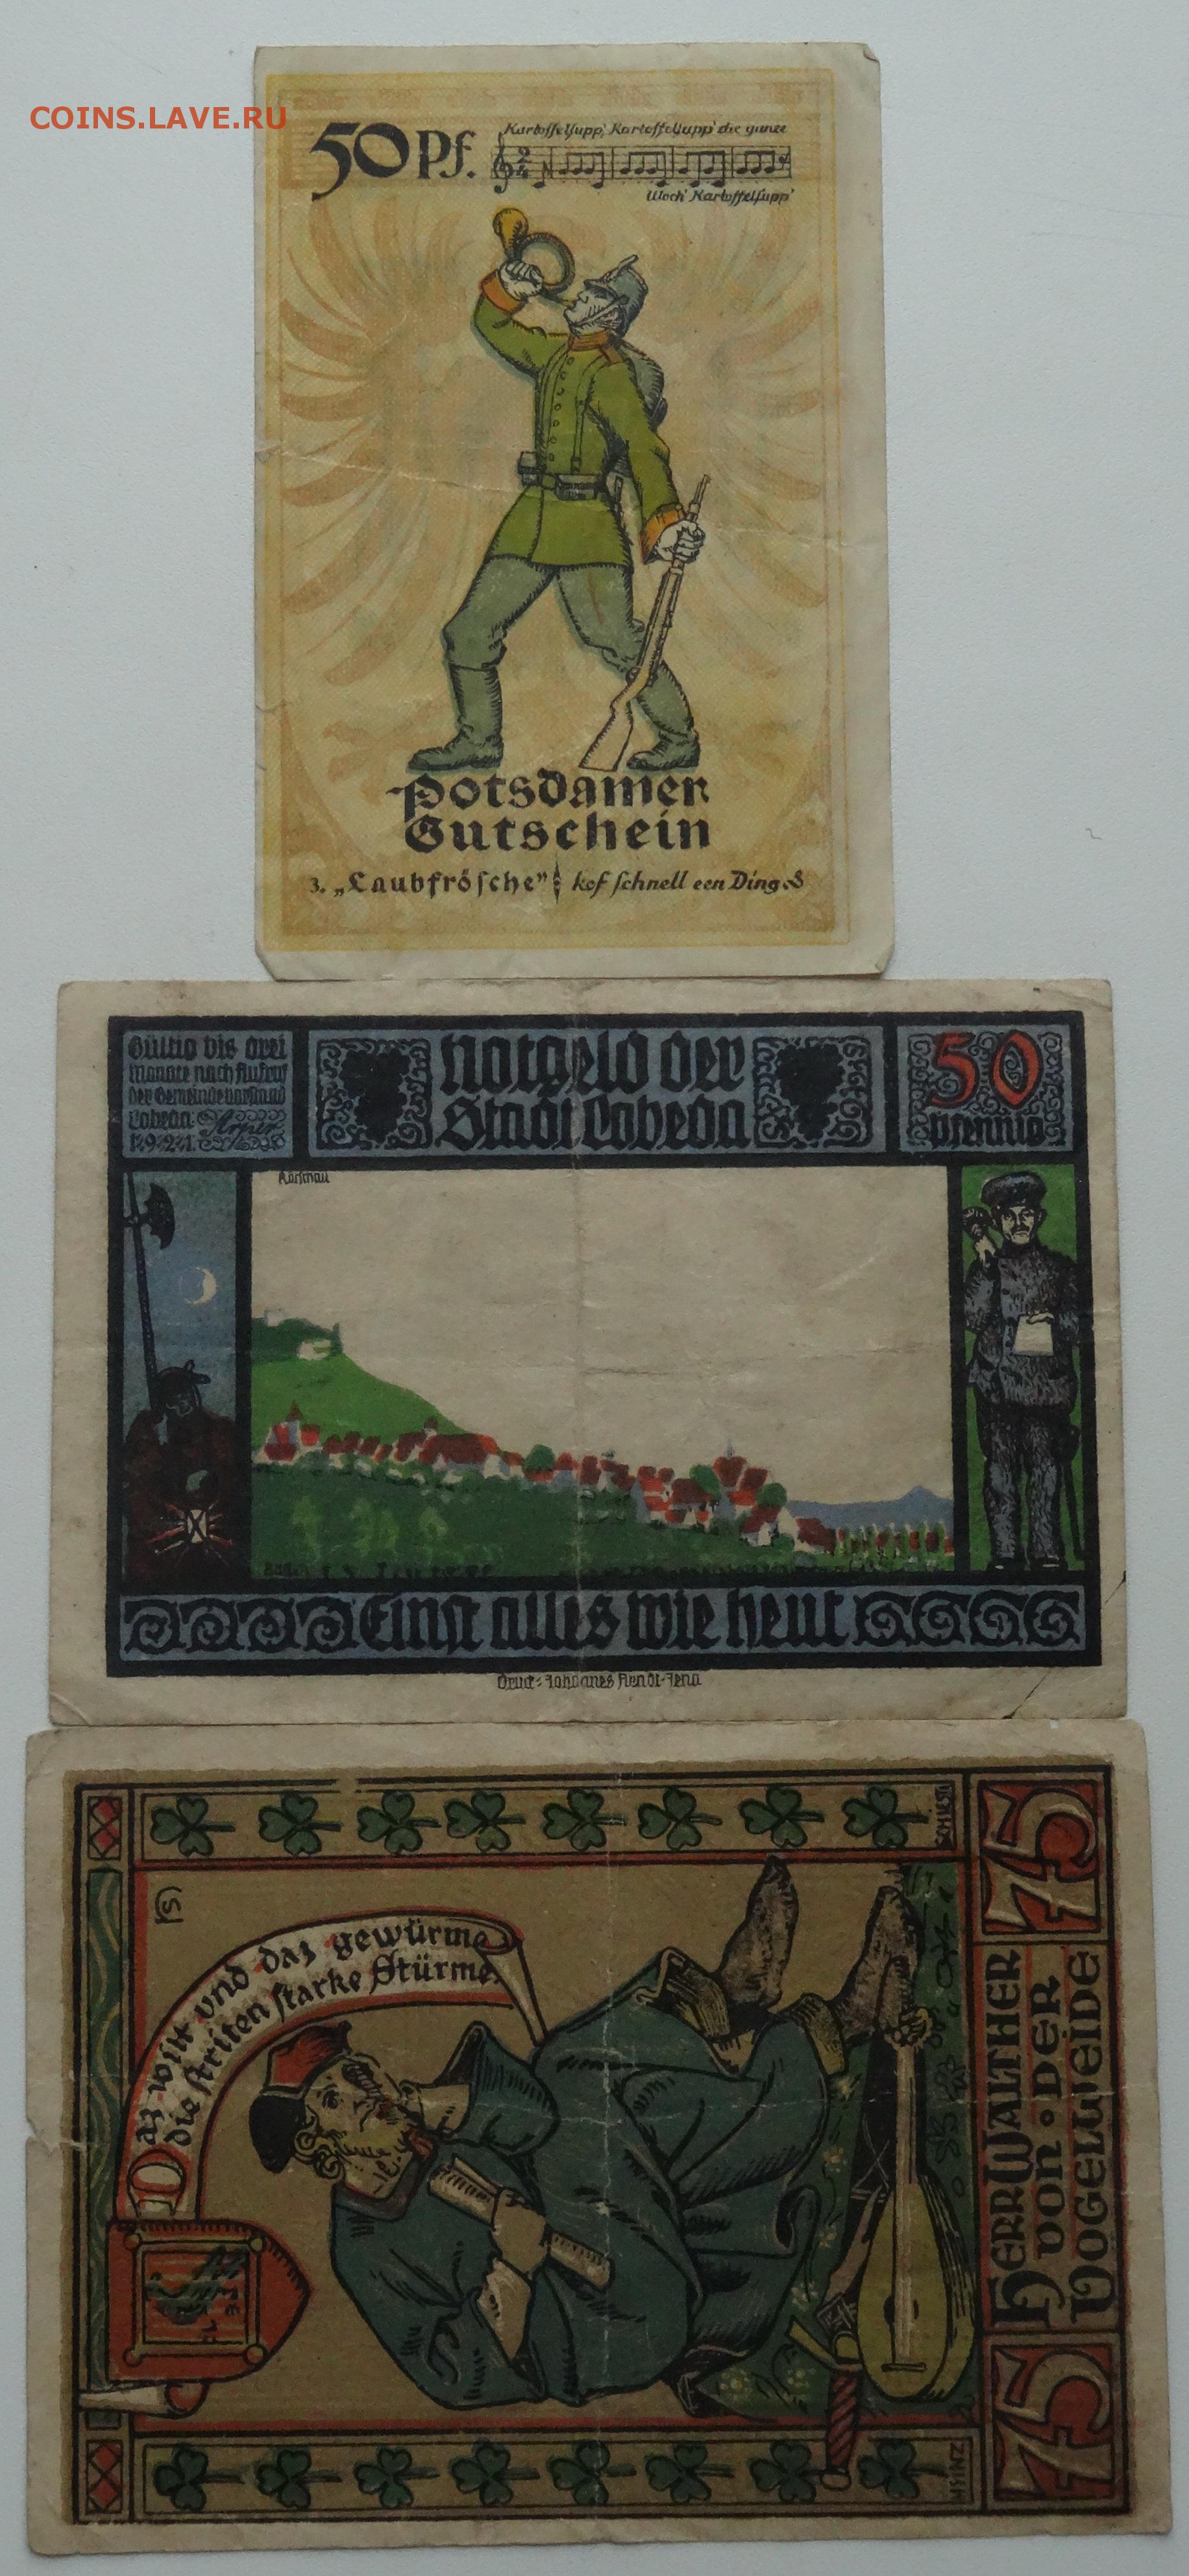 COINS.LAVE.RU
Kartoffelsupp', Kartoffelsupp' die ganze
50 Pf.
Woch' Kartoffelsupp'
Potsdamer
Gutschein
3. „Laubfrösche“: kof schnell een Ding.S
Gültig bis drei
Monate nach Aufruf
der Gemeindevorstand
Lobeda:
1921.
Notgeld der
Stadt Lobeda
50
Pfennig
Einst alles wie heut
Druck: Johannes Arndt-Jena
Daz wilt und daz gewürme
die striten starke Stürme
SCHIESTL
HEINZ
75
HERR WALTHER
VON DER
VOGELWEIDE
75